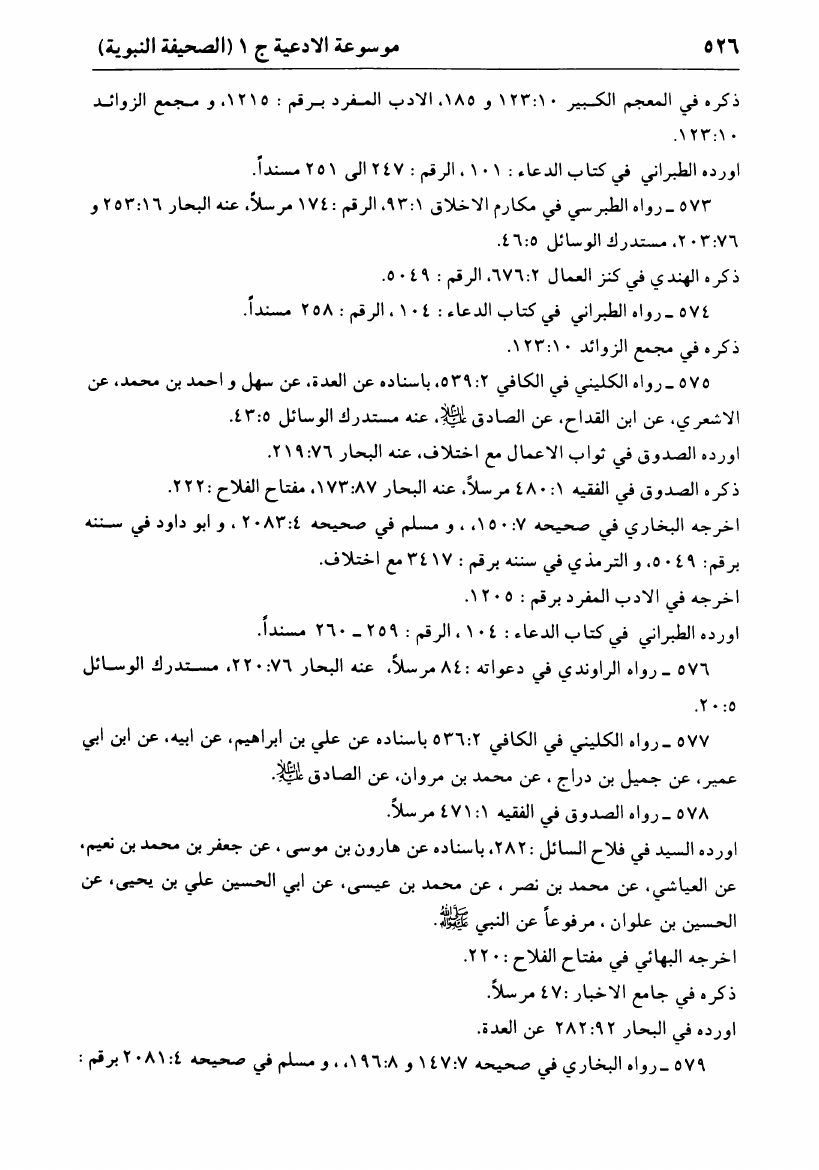 ٥٢٦ موسوعة الادعية ج ١ (الصحيفة النبوية)
ذكره في المعجم الكبير ١٢٣:١٠ و ١٨٥، الادب المفرد برقم : ١٢١٥، و مجمع الزوائد
١٢٣:١٠.
اورده الطبراني في كتاب الدعاء : ١٠١ ، الرقم : ٢٤٧ الى ٢٥١ مسنداً.
٥٧٣ ـ رواه الطبرسي في مكارم الاخلاق ٩٣:١، الرقم : ١٧٤ مرسلاً، عنه البحار ٢٥٣:١٦ و
٢٠٣:٧٦، مستدرك الوسائل ٤٦:٥.
ذكره الهندي في كنز العمال ٦٧٦:٢، الرقم : ٥٠٤٩.
٥٧٤ ـ رواه الطبراني في كتاب الدعاء : ١٠٤ ، الرقم : ٢٥٨ مسنداً.
ذكره في مجمع الزوائد ١٢٣:١٠.
٥٧٥ ـ رواه الكليني في الكافي ٥٣٩:٢، باسناده عن العدة، عن سهل و احمد بن محمد، عن
الاشعري، عن ابن القداح، عن الصادق عليه السلام، عنه مستدرك الوسائل ٤٣:٥.
اورده الصدوق في ثواب الاعمال مع اختلاف، عنه البحار ٢١٩:٧٦.
ذكره الصدوق في الفقيه ٤٨٠:١ مرسلاً، عنه البحار ١٧٣:٨٧، مفتاح الفلاح :٢٢٢.
اخرجه البخاري في صحيحه ١٥٠:٧، ، و مسلم في صحيحه ٢٠٨٣:٤ ، و ابو داود في سننه
برقم: ٥٠٤٩، و الترمذي في سننه برقم : ٣٤١٧ مع اختلاف.
اخرجه في الادب المفرد برقم : ١٢٠٥.
اورده الطبراني في كتاب الدعاء : ١٠٤ ، الرقم : ٢٥٩ ـ ٢٦٠ مسنداً.
٥٧٦ ـ رواه الراوندي في دعواته :٨٤ مرسلاً، عنه البحار ٢٢٠:٧٦، مستدرك الوسائل
٢٠:٥.
٥٧٧ ـ رواه الكليني في الكافي ٥٣٦:٢ باسناده عن علي بن ابراهيم، عن ابيه، عن ابن ابي
عمير، عن جميل بن دراج ، عن محمد بن مروان، عن الصادق عليه السلام.
٥٧٨ ـ رواه الصدوق في الفقيه ٤٧١:١ مرسلاً.
اورده السيد في فلاح السائل :٢٨٢، باسناده عن هارون بن موسى ، عن جعفر بن محمد بن نعيم،
عن العياشي، عن محمد بن نصر ، عن محمد بن عيسى، عن ابي الحسين علي بن يحيى، عن
الحسين بن علوان ، مرفوعاً عن النبي ﷺ.
اخرجه البهائي في مفتاح الفلاح :٢٢٠.
ذكره في جامع الاخبار :٤٧ مرسلاً.
اورده في البحار ٢٨٢:٩٢ عن العدة.
٥٧٩ ـ رواه البخاري في صحيحه ١٤٧:٧ و ١٩٦:٨، ، و مسلم في صحيحه ٢٠٨١:٤ برقم :